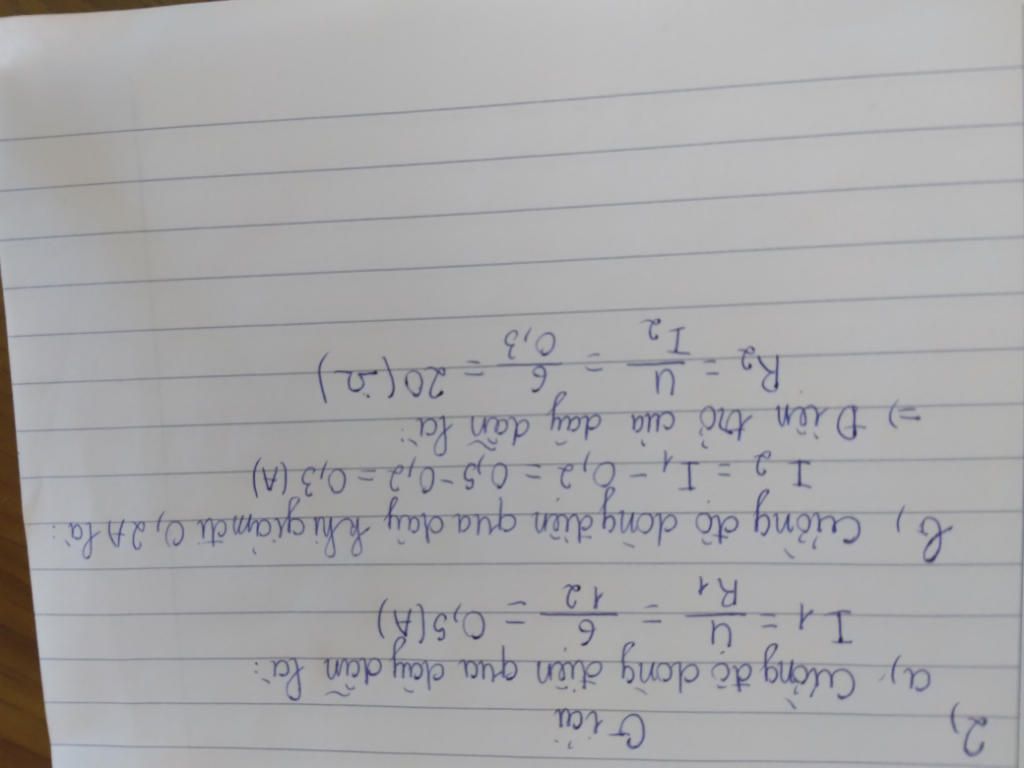 2,
Giải
a, Cường độ dòng điện qua dây dẫn là:
I1 = U/R1 = 6/12 = 0,5 (A)
b, Cường độ dòng điện qua dây khi giảm đi 0,2A là:
I2 = I1 - 0,2 = 0,5 - 0,2 = 0,3 (A)
=) Điện trở của dây dẫn là:
R2 = U/I2 = 6/0,3 = 20 (Ω)